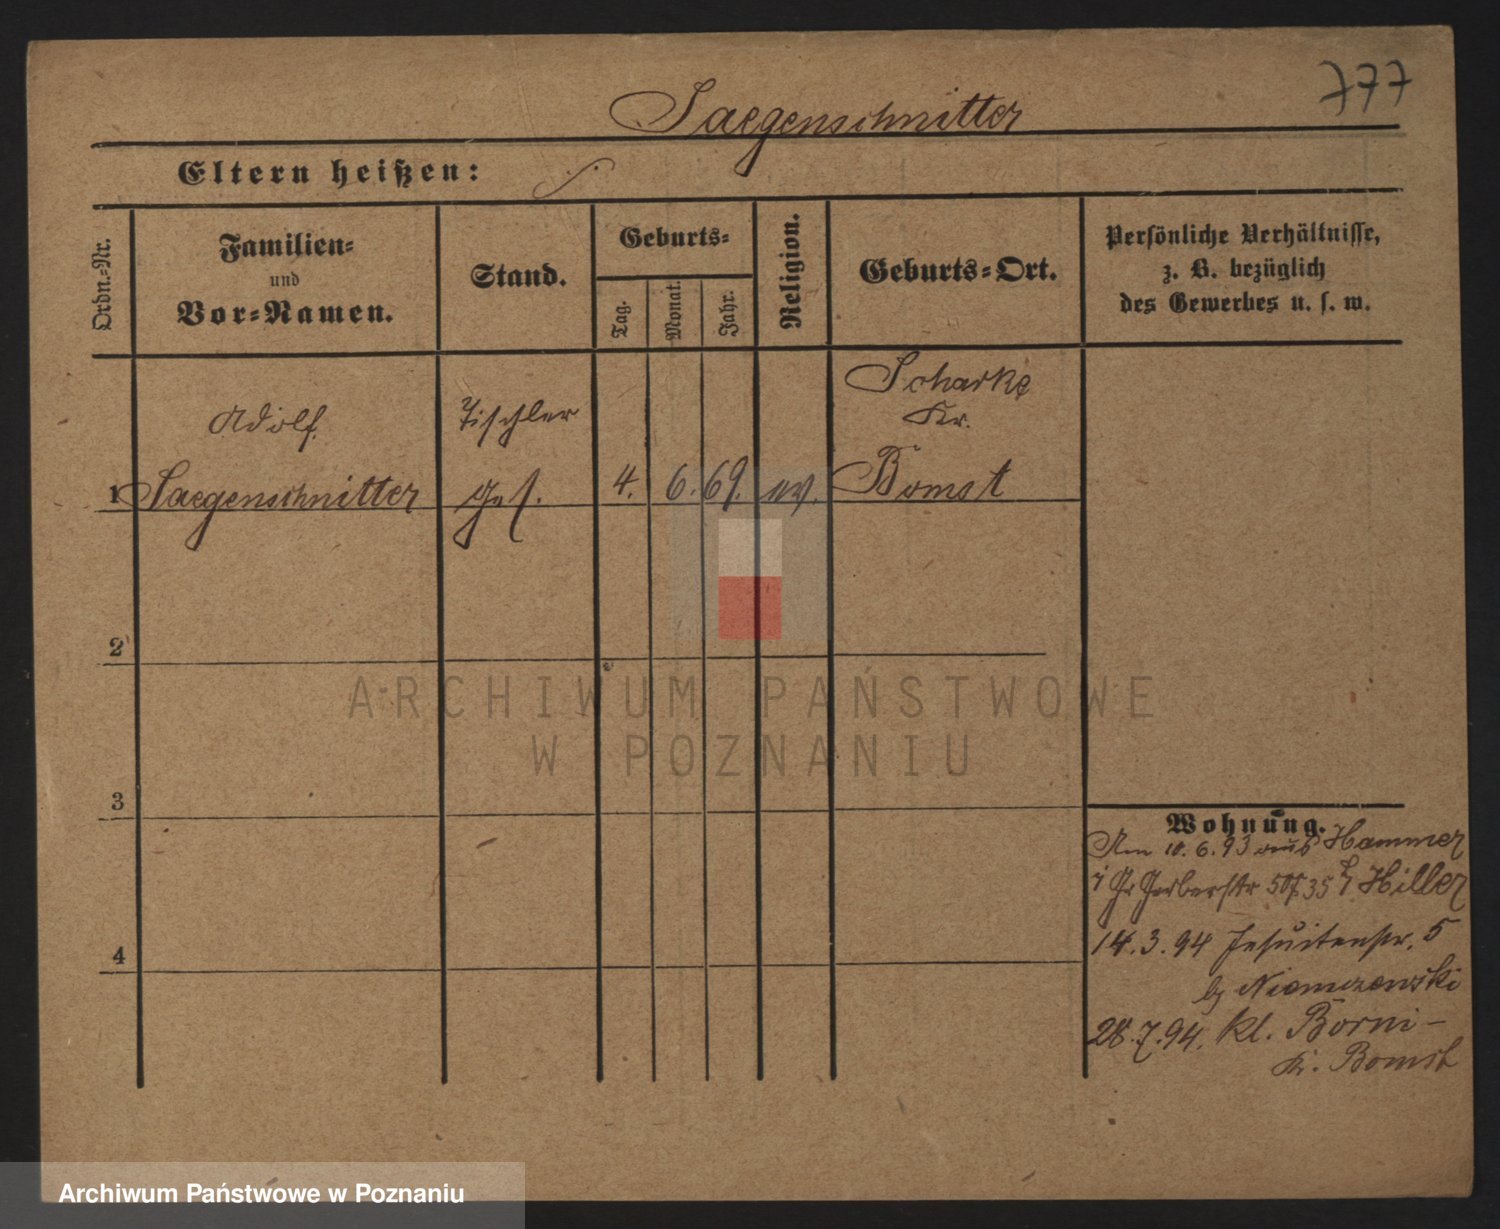 777
Saegenschnitter
Eltern heißen:
Ordn.-Nr.
Familien-
und
Vor-Namen.
Stand.
Geburts-
Tag.
Monat.
Jahr.
Religion.
Geburts-Ort.
Persönliche Verhältnisse,
z. B. bezüglich
des Gewerbes u. s. w.
Adolf
Tischler
Scharke
Kr.
1 Saegenschnitter Ges. 4. 6. 69. ev. Bomst
2
3
4
Wohnung.
Am 10.6.93 aus Hammer
i Gr Gerberstr 50 35 b/ Hiller
14.3.94 Jesuitenstr. 5
b/ Niemczewski
28.7.94. Kl. Borni-
Kr. Bomst
ARCHIWUM PAŃSTWOWE
W POZNANIU
Archiwum Państwowe w Poznaniu